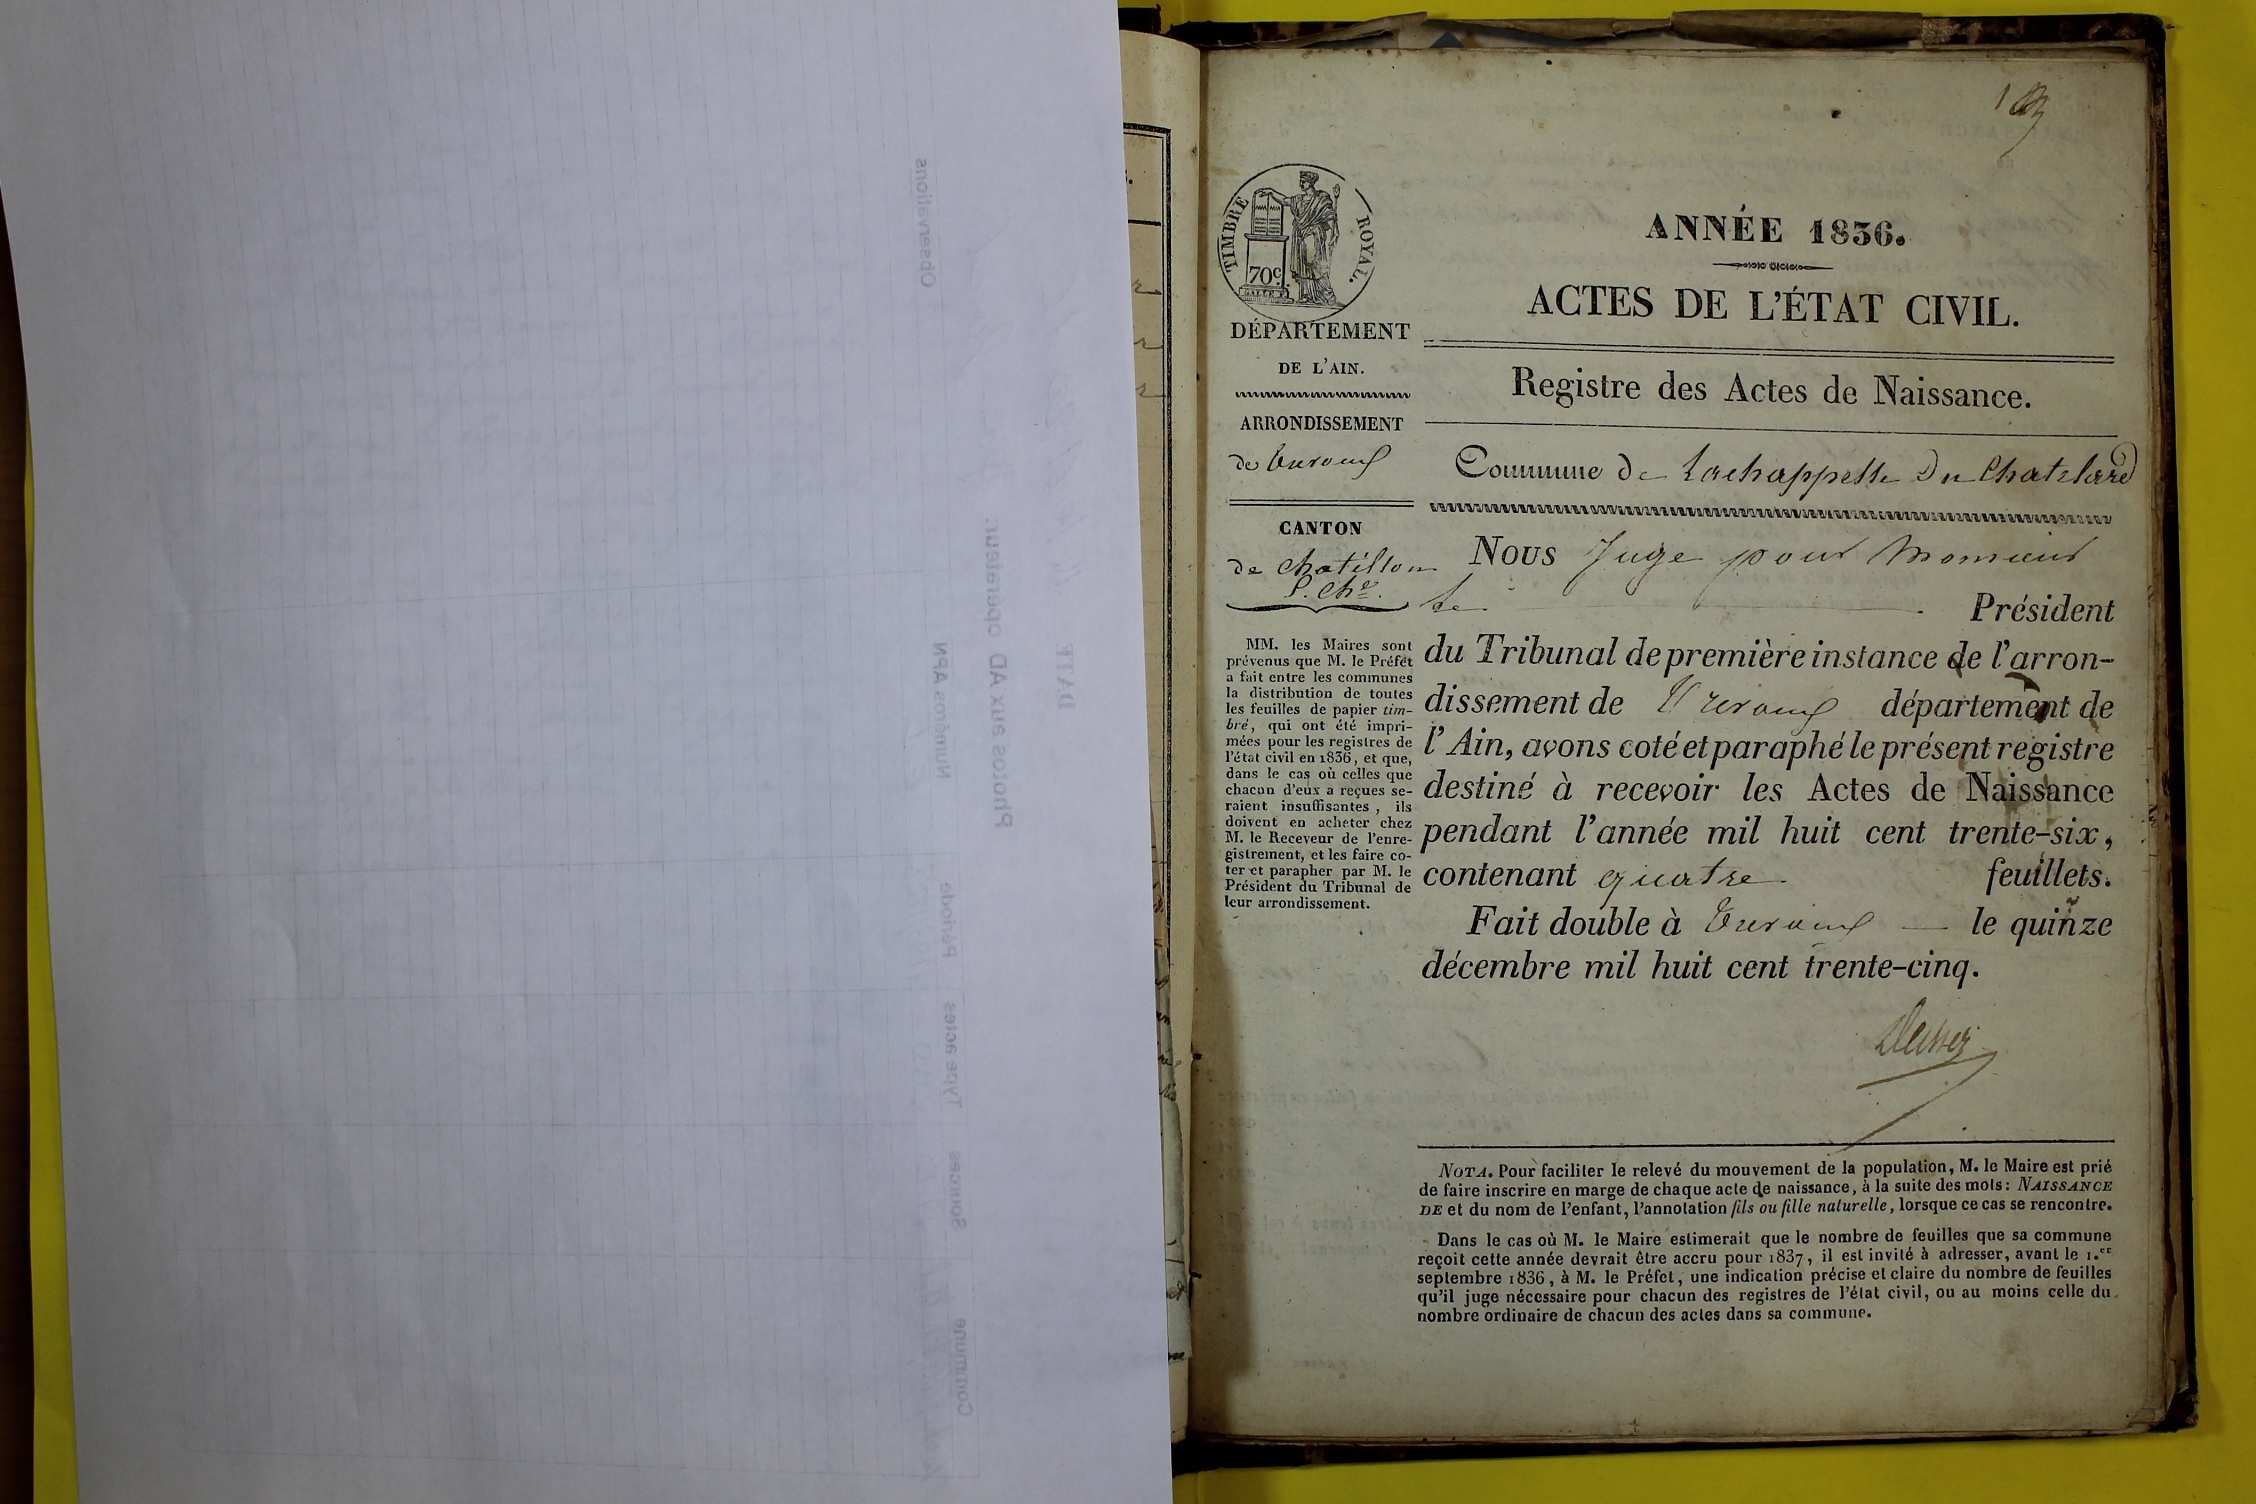 TIMBRE ROYAL.
70c.
DÉPARTEMENT
DE L'AIN.
ARRONDISSEMENT
de Trévoux
CANTON
de Chatillon
S. Chne.
MM. les Maires sont
prévenus que M. le Préfet
a fait entre les communes
la distribution de toutes
les feuilles de papier tim-
bré, qui ont été impri-
mées pour les registres de
l'état civil en 1836, et que,
dans le cas où celles que
chacun d'eux a reçues se-
raient insuffisantes, ils
doivent en acheter chez
M. le Receveur de l'enre-
gistrement, et les faire co-
ter et parapher par M. le
Président du Tribunal de
leur arrondissement.
ANNÉE 1836.
ACTES DE L'ÉTAT CIVIL.
Registre des Actes de Naissance.
Commune de Lachappelle Du Chatelard
Nous Juge pour Monsieur
le Président
du Tribunal de première instance de l'arron-
dissement de Trévoux département de
l'Ain, avons coté et paraphé le présent registre
destiné à recevoir les Actes de Naissance
pendant l'année mil huit cent trente-six,
contenant quatre feuillets.
Fait double à Trévoux — le quinze
décembre mil huit cent trente-cinq.
NOTA. Pour faciliter le relevé du mouvement de la population, M. le Maire est prié
de faire inscrire en marge de chaque acte de naissance, à la suite des mots: NAISSANCE
DE et du nom de l'enfant, l'annotation fils ou fille naturelle, lorsque ce cas se rencontre.
Dans le cas où M. le Maire estimerait que le nombre de feuilles que sa commune
reçoit cette année devrait être accru pour 1837, il est invité à adresser, avant le 1.er
septembre 1836, à M. le Préfet, une indication précise et claire du nombre de feuilles
qu'il juge nécessaire pour chacun des registres de l'état civil, ou au moins celle du
nombre ordinaire de chacun des actes dans sa commune.
Photos aux AD opérateur.
DATE
Commune
Sources
Type actes
Période
Numéros APN
Observations